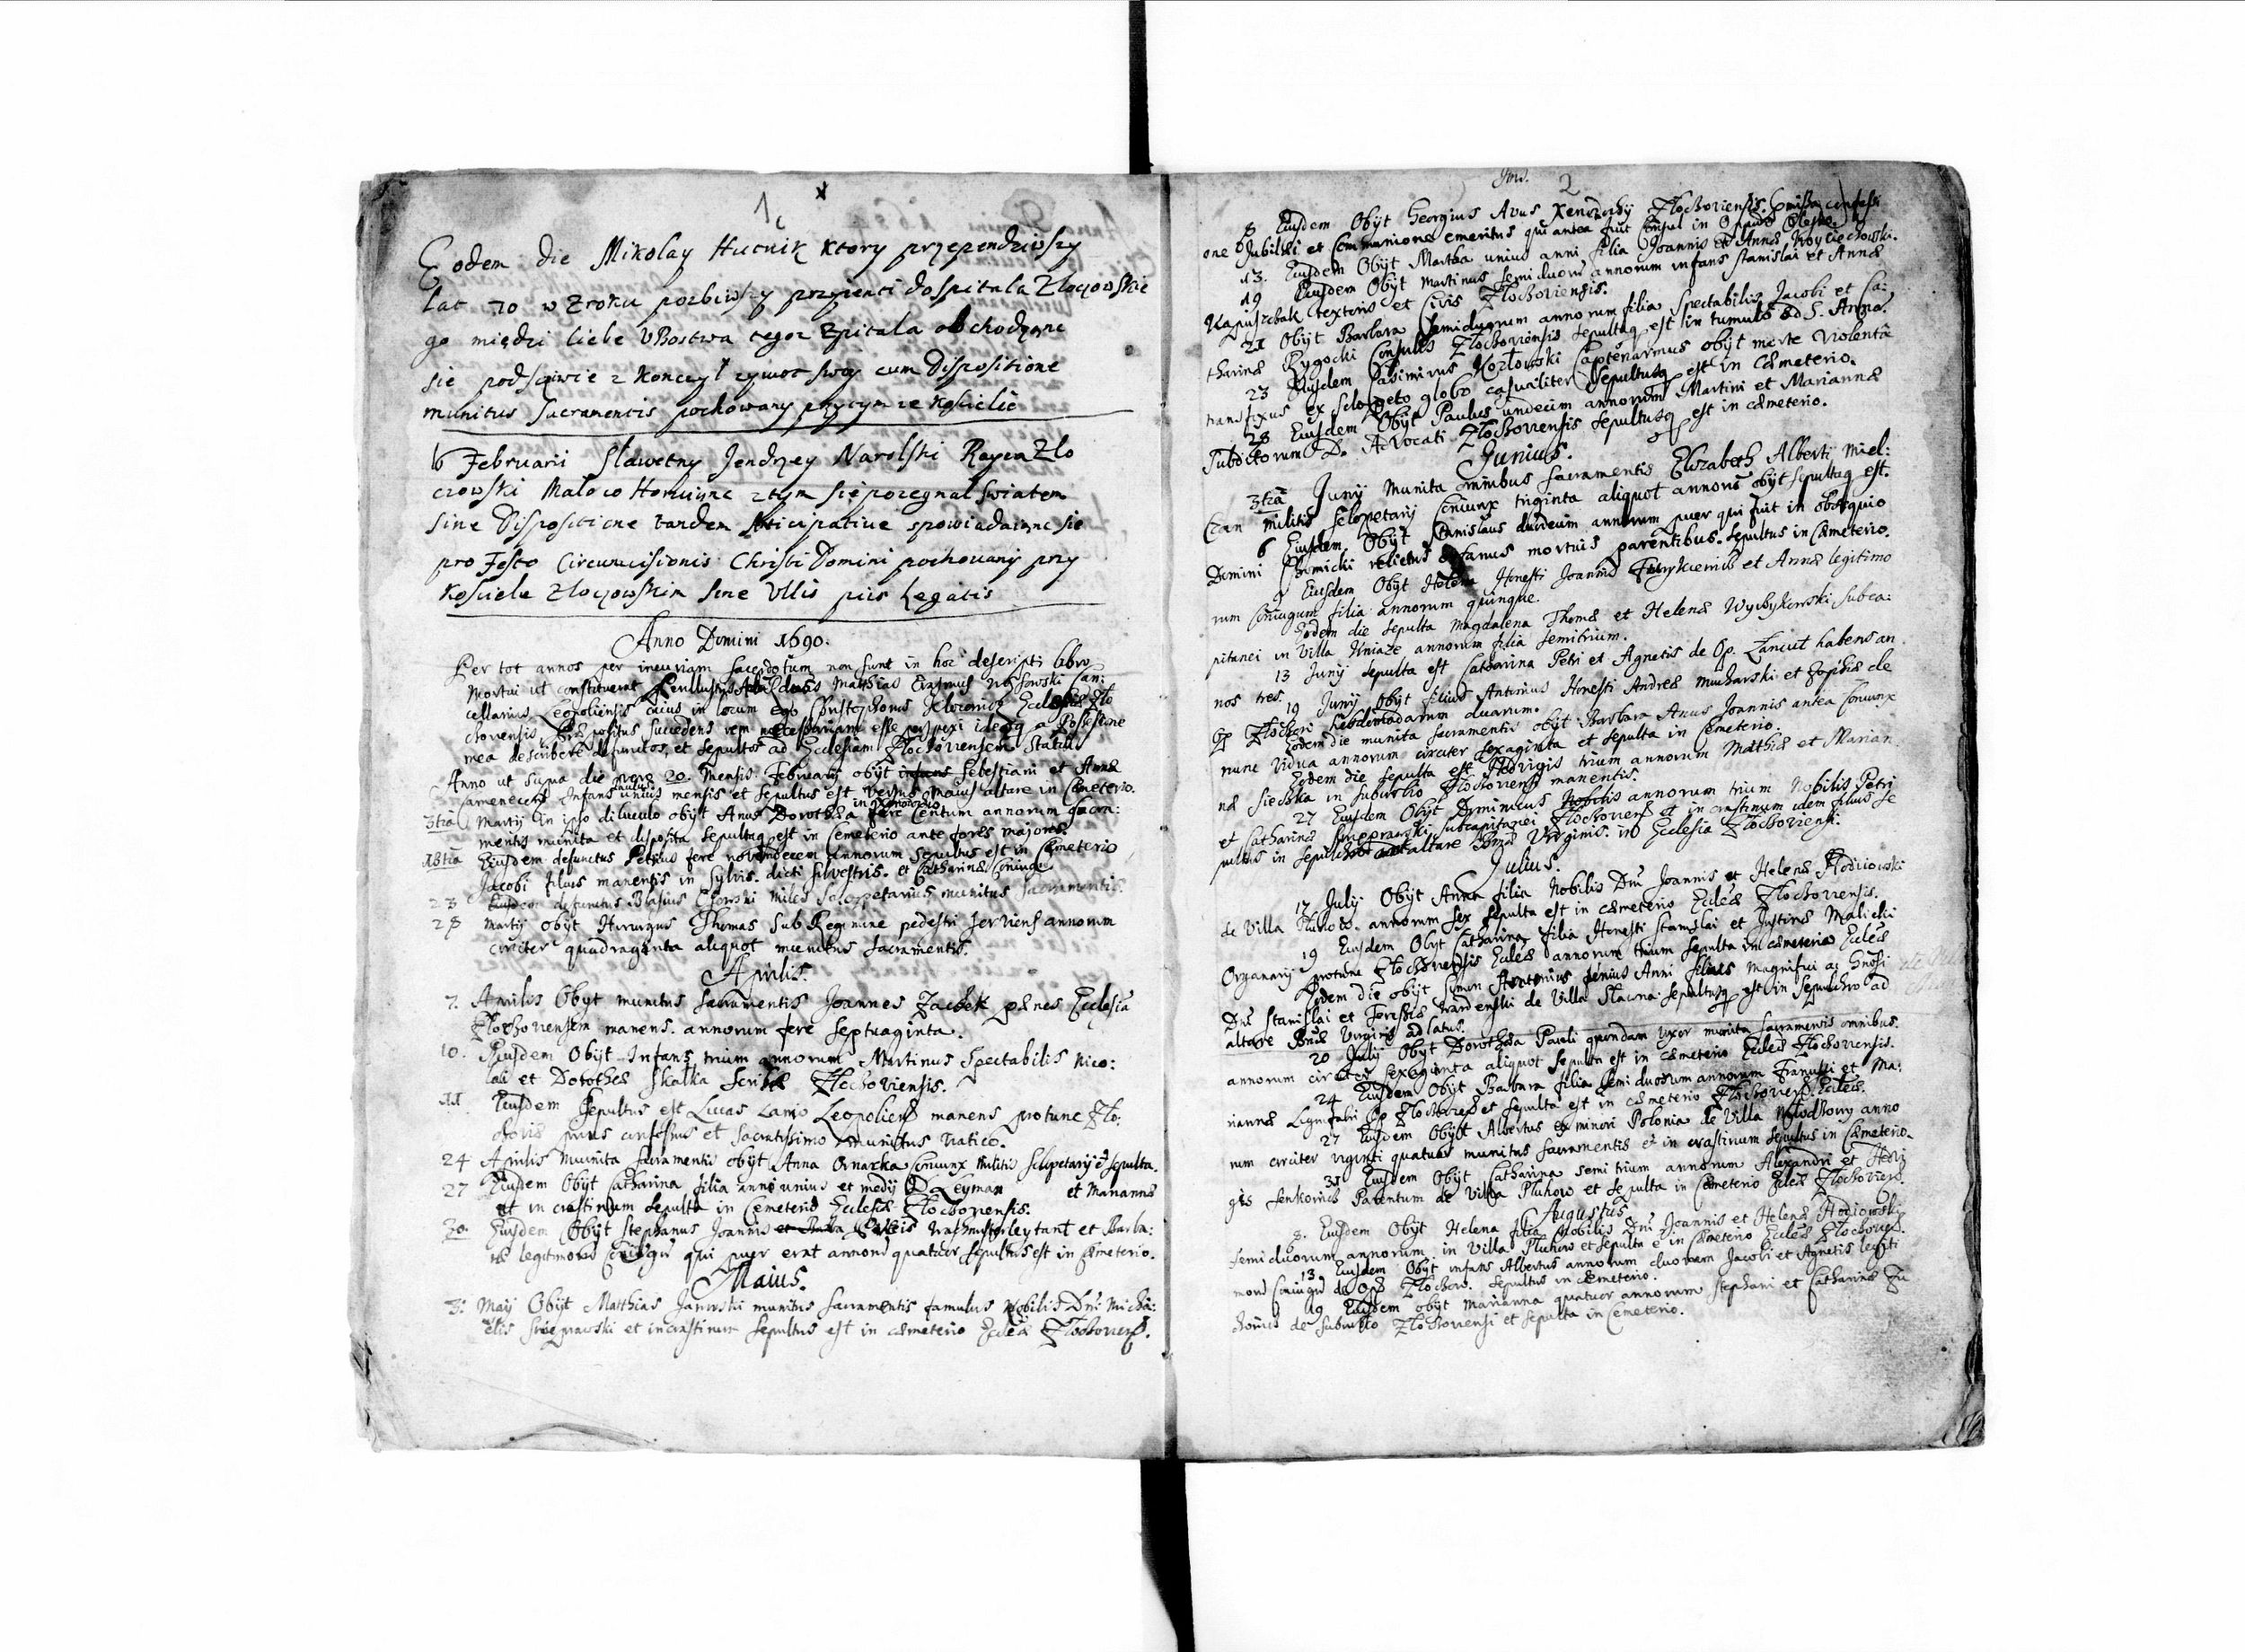 1
Eodem die Mikolay Hutnik ktory przependziwszy
lat 70 w zroku pozbiwszy przyienti do spitala Zloczowskie
go między liebe Vbostwa tegoz Szpitala obchodząc
sie podsciwie zkonczyl zywot swoy cum Dispositione
munitus Sacramentis pochowany przytymze Kosciele
6 Februarii Slawetny Jendrzey Narolski Rayca Zlo
czowski Malo co Horuiąc ztym sie pozegnal swiatem
sine Dispositione tandem Anticipative spowiadaiąc sie
pro Festo Circumcisionis Christi Domini pochowany przy
Kosciele Zloczowskim sine Vllis piis Legatis
Anno Domini 1690.
Per tot annos per incuriam sacerdotum non sunt in hoc descripti libro
Mortui ut constituerat Matthias Can:
cellarius Leopoliensis cuius in locum ego Christophorus Ecclesiæ Zlo
choviensis Præpositus succedens rem necessariam esse perspexi ideoq a Possessione
mea describere defunctos, et sepultos ad Ecclesiam Zlochoviensem statui
Anno ut supra die 20. Mensis Februarij obijt infans Sebestiani et Annæ
infans unius mensis et sepultus est versus maius altare in Cemeterio.
3tia Martij in ipso diluculo obijt Anus Dorothea fere Centum annorum sacra:
mentis munita et disposita sepultaq est in Cemeterio ante fores majores.
18tia Eiusdem defunctus Petrus fere novemdecem annorum sepultus est in Cæmeterio
Jacobi filius manentis in sylvis. dicti silvestris. et Catharinæ Coniugu
23 Eiusdem defunctus Blasius Miles Sclopetarius munitus sacramentis.
28 Martij obijt Thomas sub Regimine pedestri serviens annorum
circiter quadraginta aliquot munitus sacramentis.
Aprilis.
7. Aprilis Obijt munitus sacramentis Joannes Zacbek penes Ecclesiã
Zlochoviensem manens. annorum fere septuaginta.
10. Eiusdem Obijt Infans trium annorum Martinus Spectabilis Nico:
lai et Dorotheæ Skalka Scribæ Zlochoviensis.
11 Eiusdem sepultus est Lucas Lanio Leopoliens manens protunc Zlo:
choviæ prius confessus et sacratissimo munitus Viatico.
24 Aprilis munita sacramentis obijt Anna Ornacka Coniunx militis Sclopetarij et sepulta.
27 Eiusdem Obijt Catharina filia anni unius et medij D Leyman et Mariannæ
et in crastinum sepulta in Cemeterio Ecclesiæ Zlochoviensis.
30 Eiusdem Obijt Stephanus Joannis et Barba:
ræ legitimorũ Coniugũ qui puer erat annorũ quatuor sepultus est in Cæmeterio.
Maius.
3. Maij Obijt Matthias Janowski munitus sacramentis famulus Nobilis Dni Micha:
elis et in crastinum sepultus est in cæmeterio Eccleæ Zlochoviens.
2
8 Eiusdem Obijt Georgius Avus Zlochoviensis præmissa confessi
one Jubilæi et Communione emeritus qui antea fuit Consul in Oppido Olesko.
13. Eiusdem Obijt Martha unius anni filia Joannis et Annæ Woyciechowski.
19 Eiusdem Obijt Martinus semiduorũ annorum infans Stanislai et Annæ
Kapuszczak textoris et Civis Zlochoviensis.
21 Obijt Barbara semiduorum annorum filia Spectabilis Jacobi et Ca:
tharinæ Rygocki Consulis Zlochoviensis sepultaq est in tumulo ad S. Annã.
23 Eiusdem Casimirus Kozłowski Captenarmus obijt morte violentâ
transfixus ex sclopeto globo casualiter sepultusq est in Cæmeterio.
28 Eiusdem Obijt Paulus undecim annorum Martini et Mariannæ
Subditorum D. Advocati Zlochoviensis sepultusq est in cæmeterio.
Junius.
3tia Junij Munita omnibus sacramentis Elizabeth Alberti Miel:
czan militis Sclopetarij Coniunx triginta aliquot annorũ obijt sepultaq est.
6 Eiusdem Obijt Stanislaus duodecim annorum puer qui fuit in obsequio
Domini relictus orfanus mortuis parentibus. sepultus in Cæmeterio.
9 Eiusdem Obijt Helena Honesti Joannis et Annæ legitimo
rum Coniugum filia annorum quinque.
Eodem die sepulta Magdalena Thomæ et Helenæ Wychykowski subca:
pitanei in Villa Kniaże annorum filia semitrium.
13 Junij sepulta est Catharina Petri et Agnetis de Op. Łancut habens an
nos tres.
19 Junij Obijt filius Antonius Honesti Andreæ Mucharski et Zophiæ de
Op Zlochov hebdomadarum duarum.
Eodem die munita sacramentis obijt Barbara Anus Joannis antea Coniunx
nunc Vidua annorum circiter sexaginta et sepulta in Cemeterio.
Eodem die sepulta est Hedvigis trium annorum Mathiæ et Marian
næ Sieczka in suburbio Zlochoviens manentis.
27 Eiusdem Obijt Dominicus Nobilis annorum trium Nobilis Petri
et Catharinæ Subcapitanei Zlochoviens et in crastinum idem filius se
pultus in sepulchro ad altare Beatæ Virginis. in Ecclesia Zlochoviensi.
Julius.
17 Julij Obijt Anna filia Nobilis Dni Joannis et Helenæ Hodiowski
de Villa Pluhow. annorum sex sepulta est in cæmeterio Eccleæ Zlochoviensis.
19 Eiusdem Obijt Catharina filia Honesti Stanislai et Justinæ Malicki
Organarij protunc Zlochoviensis Eccleæ annorum trium sepulta in cæmeterio Eccleæ
Eodem die obijt Simon Antonius senius Anni filius Magnifici ac Gnosi
Dni Stanislai et Teresiæ de Villa Slawna sepultusq est in sepulchro ad
altare Beatæ Virginis ad latus.
20 Julij Obijt Dorothea Pauli quondam Uxor munita sacramentis omnibus.
annorum circiter sexaginta aliquot sepulta est in cæmeterio Eccleæ Zlochoviensis.
24 Eiusdem Obijt Barbara filia semi duorum annorum Francisci et Ma:
riannæ Lignifabri Op Zlochoviens et sepulta est in cæmeterio Zlochoviens. Eccleæ.
27 Eiusdem Obijt Albertus ex minori Polonia de Villa anno
rum circiter viginti quatuor munitus sacramentis et in crastinum sepultus in Cæmeterio.
31 Eiusdem Obijt Catharina semi trium annorum Alexandri et Hedvi
gis Senkowicz Parentum de Villa Pluhow et sepulta in Cæmeterio Eccleæ Zlochoviens.
Augustus
8. Eiusdem Obijt Helena filia Nobilis Dni Joannis et Helenæ Hodiowski
semiduorum annorum in Villa Pluhow et sepulta e in Cæmeterio Eccleæ Zlochoviens.
13 Eiusdem Obijt infans Albertus annorum duorum Jacobi et Agnetis legiti
morũ Coniugũ de Op Zlochov. sepultus in cæmeterio.
19 Eiusdem obijt Marianna quatuor annorum Stephani et Catharinæ Zu
de suburbio Zlochoviensi et sepulta in Cemeterio.